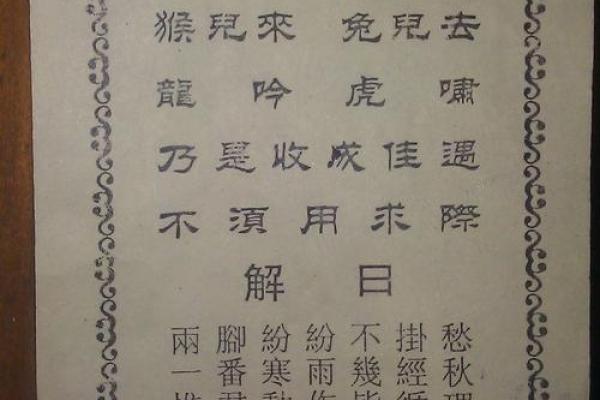 猴兒來兔兒去
龍吟虎嘯
乃是收成佳遇
不湏用求際
解曰
兩腳紛紛不掛愁
一番寒雨幾經秋